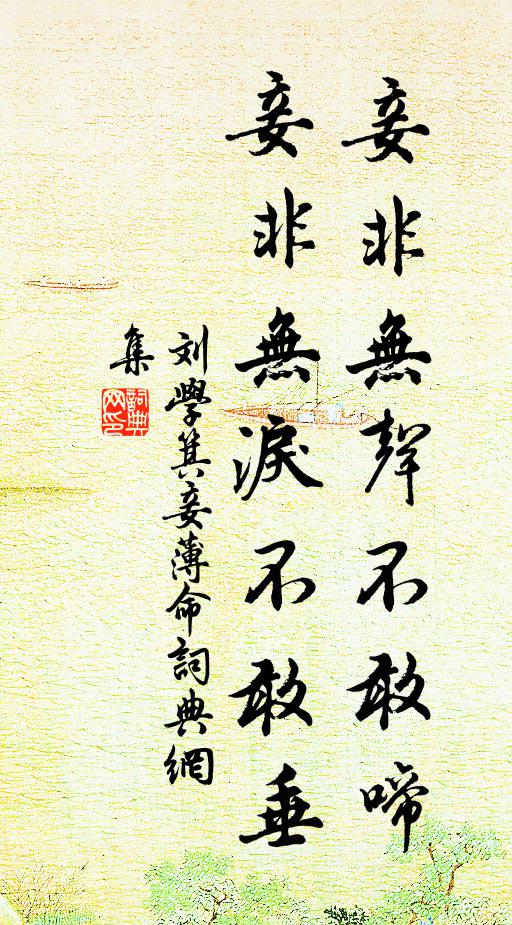 妾非無聲不敢啼
妾非無淚不敢垂
刘學箕妾薄命詞典網
集
詞典
网印